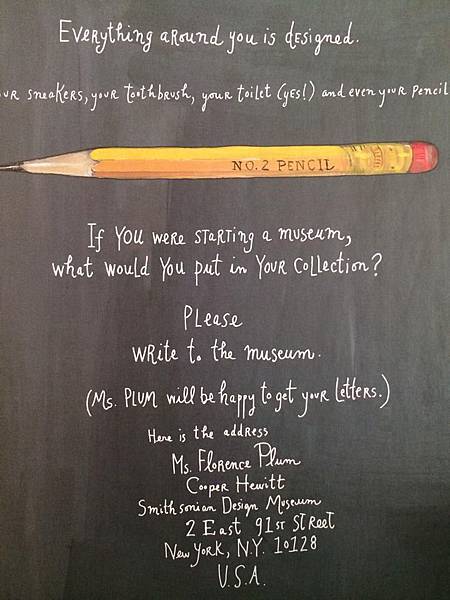 Everything around you is designed.
your sneakers, your toothbrush, your toilet (yes!) and even your pencil
NO. 2 PENCIL
If you were starting a museum,
what would you put in your collection?
Please
write to the museum.
(Ms. Plum will be happy to get your letters.)
Here is the address
Ms. Florence Plum
Cooper Hewitt
Smithsonian Design Museum
2 East 91st Street
New York, N.Y. 10128
U.S.A.